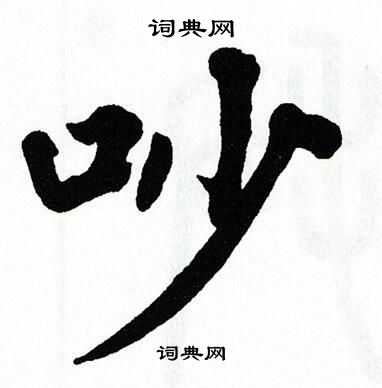 词典网
吵
词典网